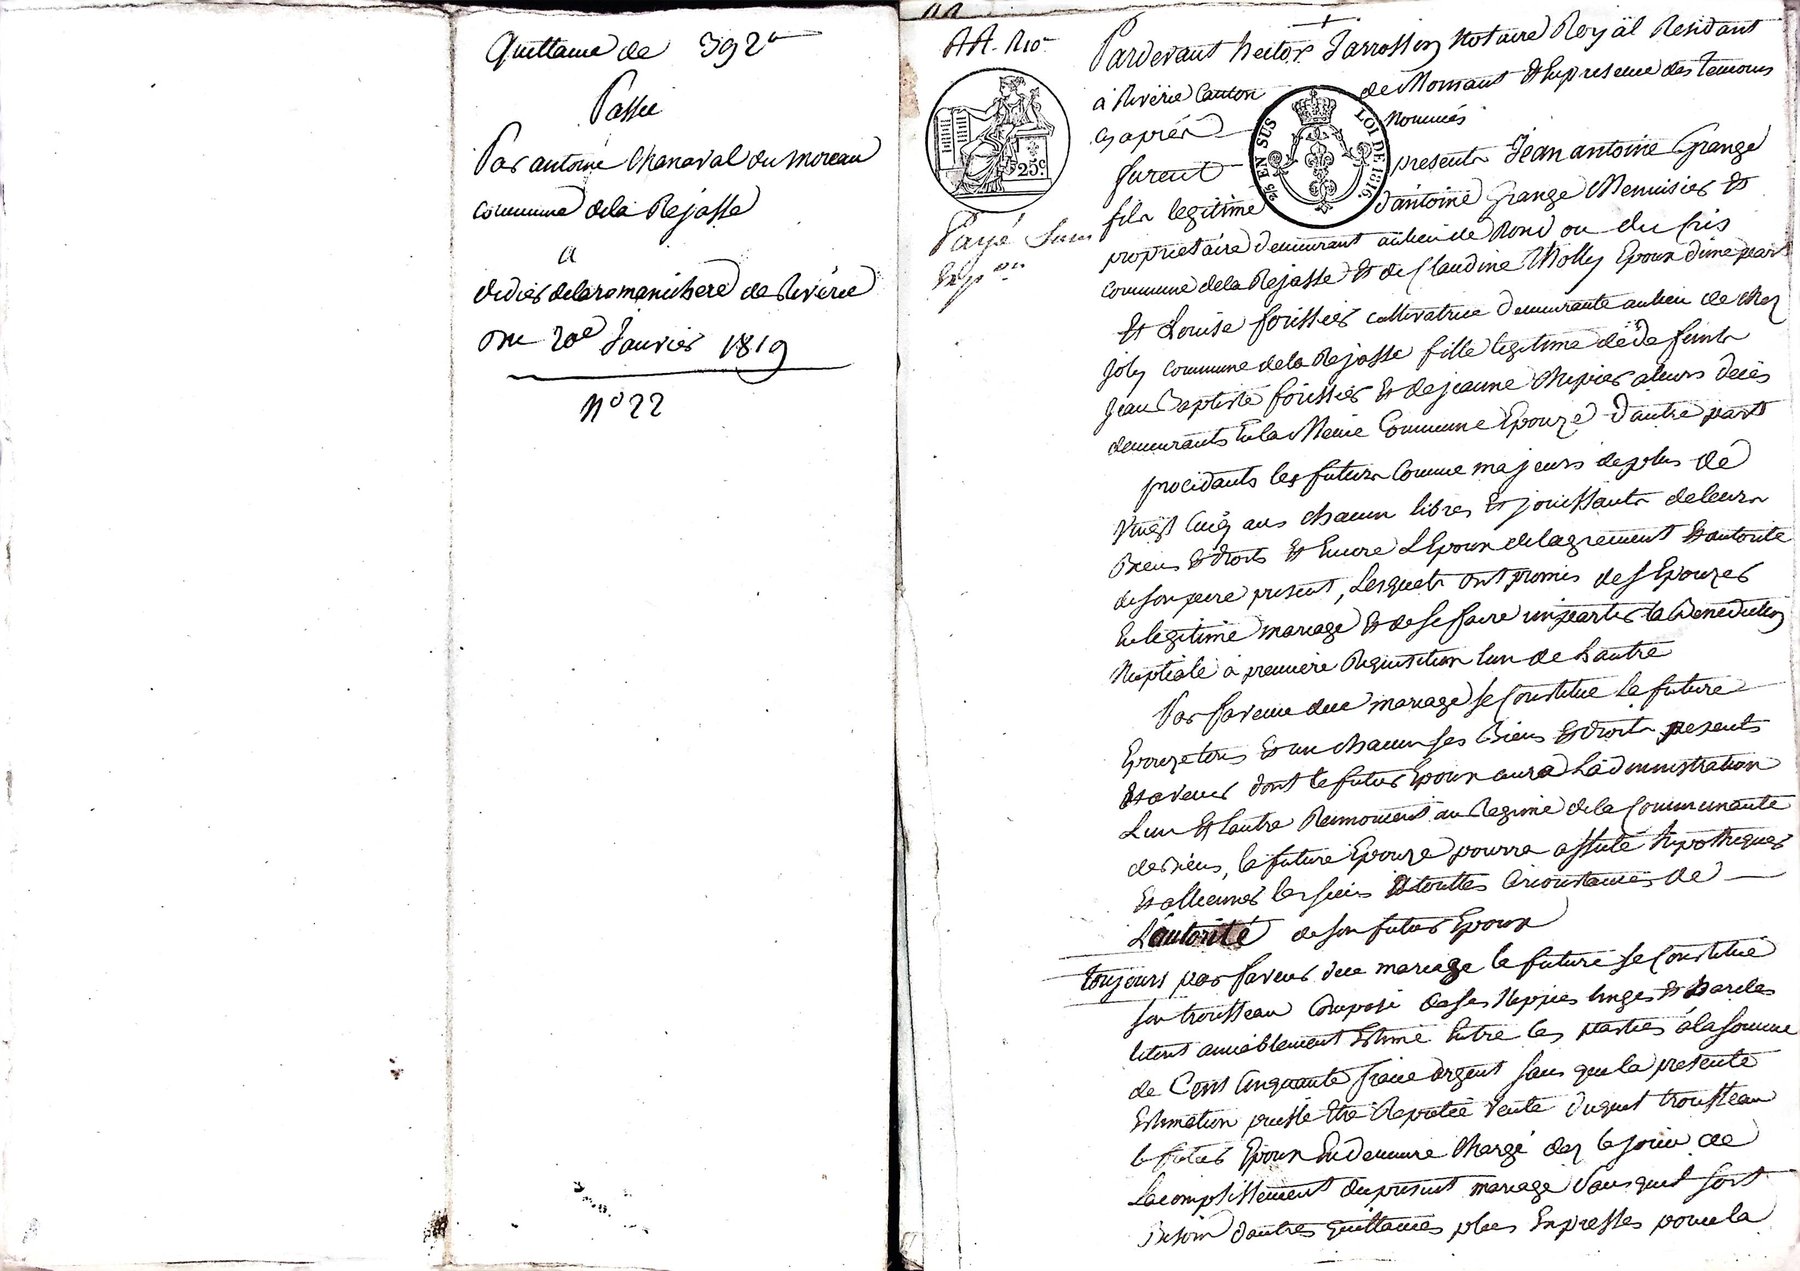 Quittance de 392"
Passée
Par antoine Chanaval du moreau
commune dela Rejasse
a
didier delaromanichere de Riverie
Du 20e Janvier 1819
N° 22
AA. R10e
25c
25 EN SUS
LOI DE 1816.
Payé Sans
Exp.on
Pardevant hector Jarrossom Notaire Royal Residant
à Riverie Canton de Mornant Et En presence des Temoins
cy aprés Nommés
furent presents Jean antoine Grange
fils legitime d'antoine Grange Menuisier Et
proprietaire demeurant au lieu de Rond ou du Cris
commune dela Rejasse Et de Claudine Molly Epoux d'une part
Et Louise foissier cultivatrice demeurante au lieu de chez
Joly commune dela Rejasse fille legitime de defunts
Jean Baptiste foissier Et de jeanne Chipier a leurs deces
demeurants En la Meme Commune Epouze d'autre part
procedants les futurs Comme majeurs de plus de
vingt Cinq ans chacun libres Et jouissants de leurs
Biens Et droits Et Encore L'Epoux de lagrement Et autorité
de son pere present, Lesquels ont promis de s'Epouzer
En legitime mariage Et de se faire impartir la Benediction
Nuptiale à premiere Requisition lun de L'autre
Par faveur duu mariage se Constitue la future
Epouze tous Et un chacun ses Biens Et droits presents
Et avenir dont le futur Epoux aura L'administration
L'un Et L'autre Renoncent au Regime de la Communauté
de Biens, la future Epouze pourra assuté hipothequer
Et alliener les siens Et touttes Circonstances de
L'autorité de son futur Epoux
toujours par faveur duu mariage la future se Constitue
son trousseau Composé de ses Nippes linges Et hardes
letout amiablement Estimé Entre les parties à la somme
de Cent Cinquante francs argent sans que la presente
Estimation puisse Etre Reputée Vente duquel trousseau
le futur Epoux En demeure Chargé dez le jour de
L'acomplissement du present mariage Sans quil soit
Besoin d'autres quittances plus Expresses pour la